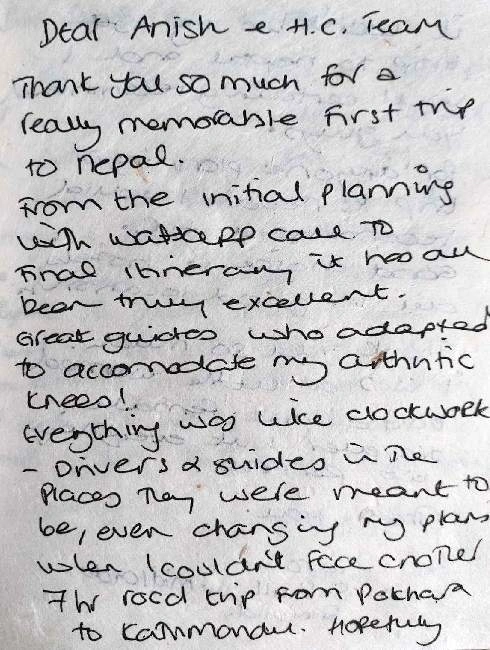 Dear Anish & H.C. Team
Thank you so much for a
really memorable first trip
to nepal.
From the initial planning
with wattapp call to
final itinerary it has all
been truly excellent.
Great guides who adapted
to accomodate my arthritic
knees!
Everything was like clockwork
- Drivers & guides in the
places they were meant to
be, even changing my plans
when I couldn't face another
7hr road trip from Pokhara
to Kathmandu. Hopefully